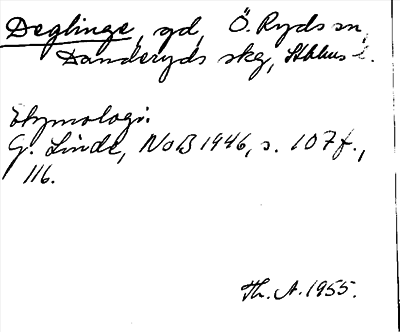 Deglinge, gd, Ö. Ryds sn,
Danderyds skg, Sthlms l.
Etymologi:
G. Linde, NoB 1946, s. 107f.,
116.
Th. A. 1955.